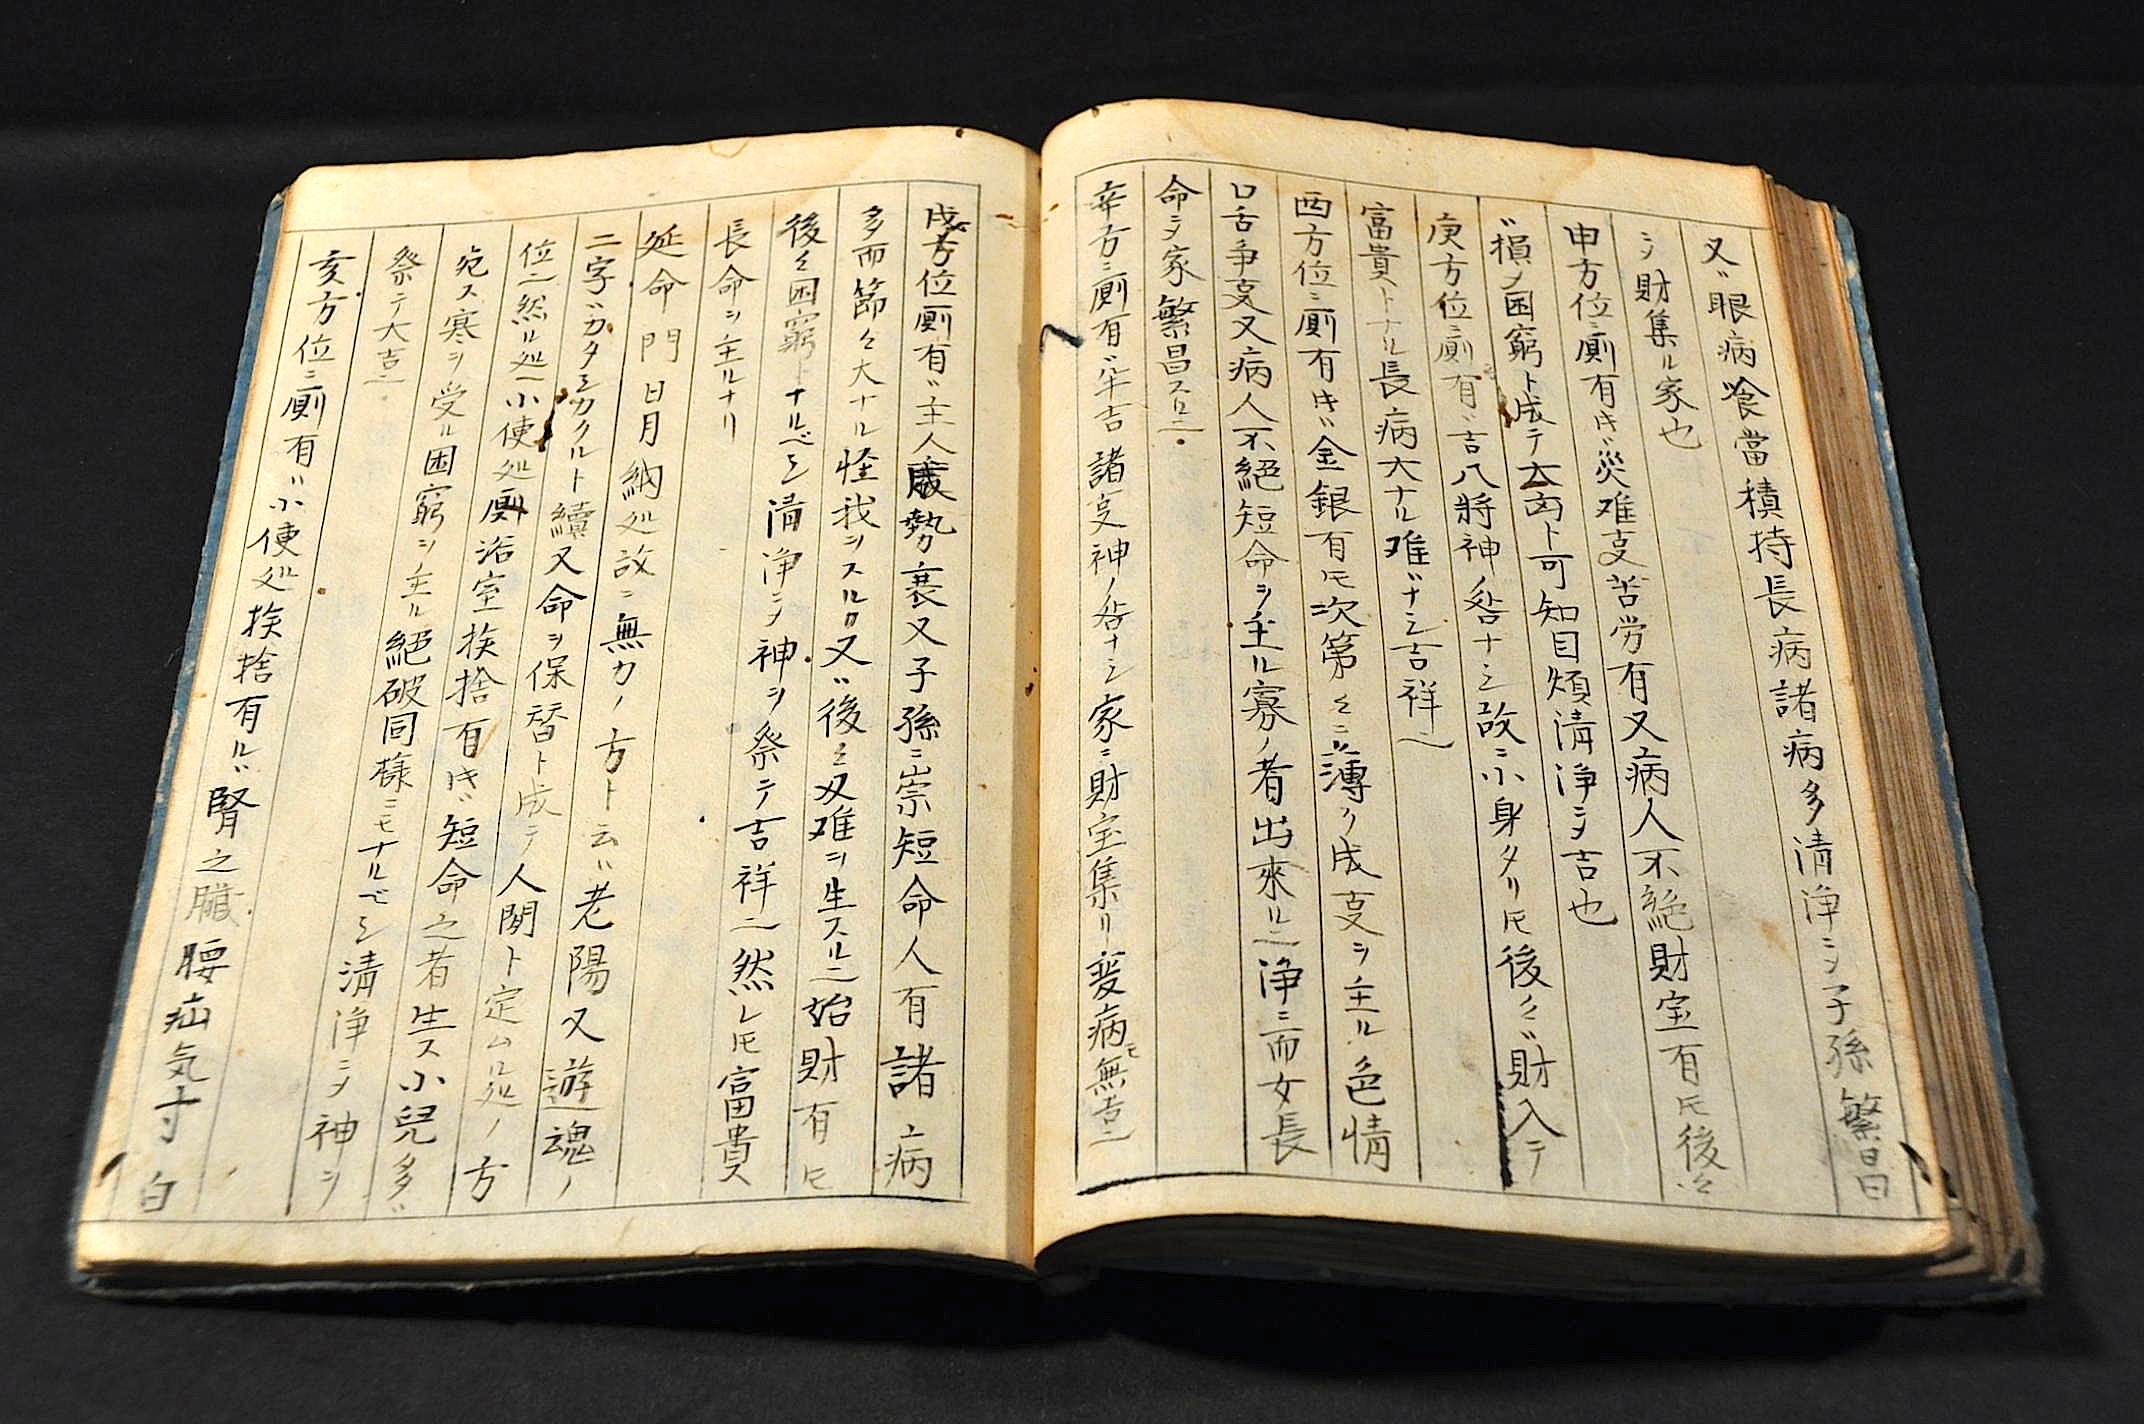 又ハ眼病喰當積持長病諸病多清浄ニシ子孫繁昌
シ財集ル家也
申方位ニ厠有ㇳキハ災难叓苦労有又病人不絶財宝有ㇳモ後々
ハ損〆困窮ト成テ大凶ト可知目煩清浄ニシテ吉也
庚方位ニ厠有ハ吉八將神咎ナシ故ニ小身タリㇳモ後々ハ財入テ
富貴トナル長病大ナル难ハナシ吉祥ニ
酉方位ニ厠有ㇳキハ金銀有ㇳモ次第々々ニ薄ク成叓ヲ主ル色情
口舌争叓又病人不絶短命ヲ主ル寡ノ者出來ル也浄ニ而女長
命シ家繁昌スルニ
辛方ニ厠有ハ半吉諸叓神ノ咎ナシ家ニ財宝集リ変病モ無
戌方位厠有ハ主人歳勢衰又子孫ニ崇短命人有諸病
多而節々大ナル怪我ヲスル又ハ後々又难ヲ生スル也始財有ㇳモ
後々困窮トナルベシ清浄ニ〆神ヲ祭テ吉祥ニ然レㇳモ富貴
長命ヲ主ルナリ
延命門日月納処故ニ無カノ方ト云ハ老陽又遊魂ノ
二字ハカタミカクルト續又命ヲ保替ト成テ人閑ト定ム此ノ方
位ニ然ル処ニ小便処厠浴室挨捨有ㇳキハ短命之者生ス小兒多ハ
死ス寒ヲ受ル困窮ヲ主ル絶破同様ニモナルベシ清浄ニ〆神ヲ
祭テ大吉ニ
亥方位ニ厠有ハ小便処挨捨有ルハ腎之臓腰疝気寸白